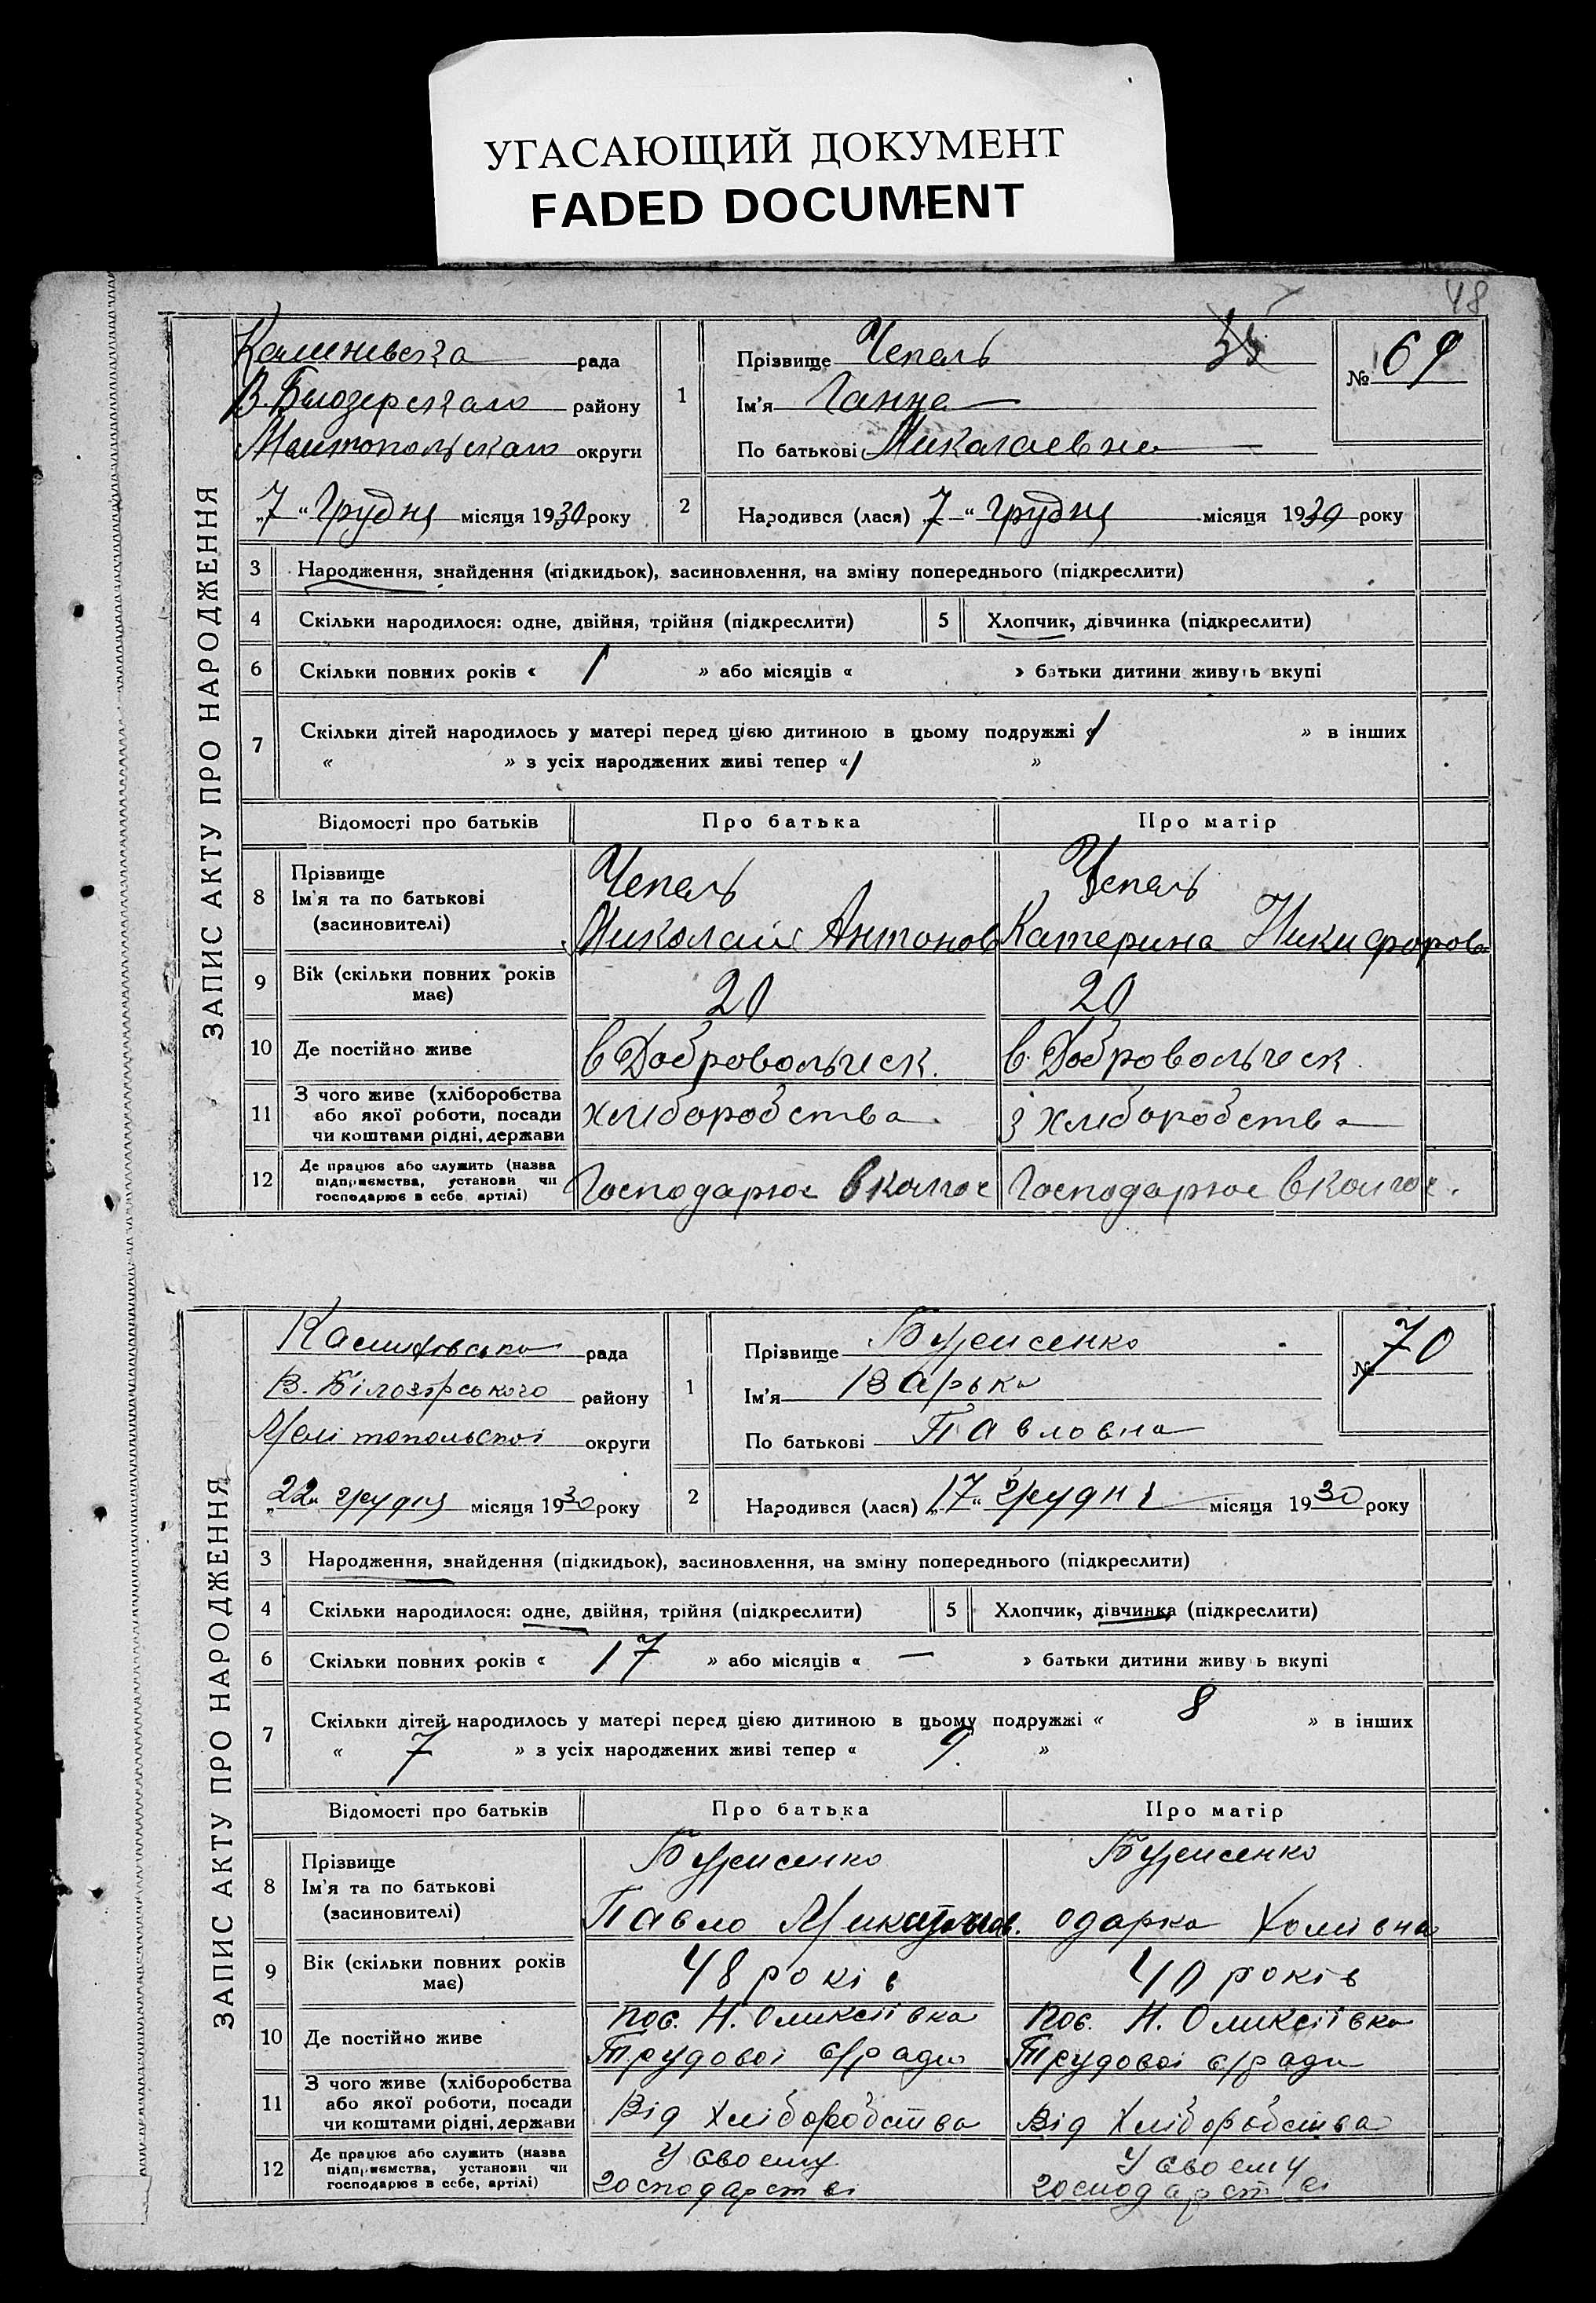 УГАСАЮЩИЙ ДОКУМЕНТ
FADED DOCUMENT
48
ЗАПИС АКТУ ПРО НАРОДЖЕННЯ
рада
В. Билозерскаго району
округи
„7“ Грудня місяця 1930 року
1
Прізвище Чепель
Ім'я Ганна
По батькові Миколаевна
№ 69
2
Народився (лася) „7“ грудня місяця 1930 року
3 Народження, знайдення (підкидьок), засиновлення, на зміну попереднього (підкреслити)
4 Скільки народилося: одне, двійня, трійня (підкреслити) 5 Хлопчик, дівчинка (підкреслити)
6 Скільки повних років « 1 » або місяців « » батьки дитини живуть вкупі
7 Скільки дітей народилось у матері перед цією дитиною в цьому подружжі « 1 » в інших
« » з усіх народжених живі тепер « 1 »
Відомості про батьків Про батька Про матір
8 Прізвище
Ім'я та по батькові
(засиновителі)
Чепель
Миколай Антонов
Чепель
Катерина Никифорова
9 Вік (скільки повних років має) 20 20
10 Де постійно живе в Добровольческ. в. Добровольческ.
11 З чого живе (хліборобства
або якої роботи, посади
чи коштами рідні, держави
хліборобства
з хліборобства
12 Де працює або служить (назва
підприємства, установи чи
господарює в себе, артілі)
Господарює в колгос
Господарює в колгос.
ЗАПИС АКТУ ПРО НАРОДЖЕННЯ
рада
В. Білозірського району
Мелітопольскої округи
„22“ грудня місяця 1930 року
1
Прізвище
Ім'я Варька
По батькові Павловна
№ 70
2
Народився (лася) „17“ грудня місяця 1930 року
3 Народження, знайдення (підкидьок), засиновлення, на зміну попереднього (підкреслити)
4 Скільки народилося: одне, двійня, трійня (підкреслити) 5 Хлопчик, дівчинка (підкреслити)
6 Скільки повних років « 17 » або місяців « — » батьки дитини живуть вкупі
7 Скільки дітей народилось у матері перед цією дитиною в цьому подружжі « 8 » в інших
« 7 » з усіх народжених живі тепер « 9 »
Відомості про батьків Про батька Про матір
8 Прізвище
Ім'я та по батькові
(засиновителі)
Павло
Одарка Хомівна
9 Вік (скільки повних років має) 48 років 40 років
10 Де постійно живе
пос. Н. Оликсіївка
Трудової с/ради
пос. Н. Оликсіївка
Трудової с/ради
11 З чого живе (хліборобства
або якої роботи, посади
чи коштами рідні, держави
Від хліборобства
Від хліборобства
12 Де працює або служить (назва
підприємства, установи чи
господарює в себе, артілі)
У своему
господарстві
У своему
господарстві